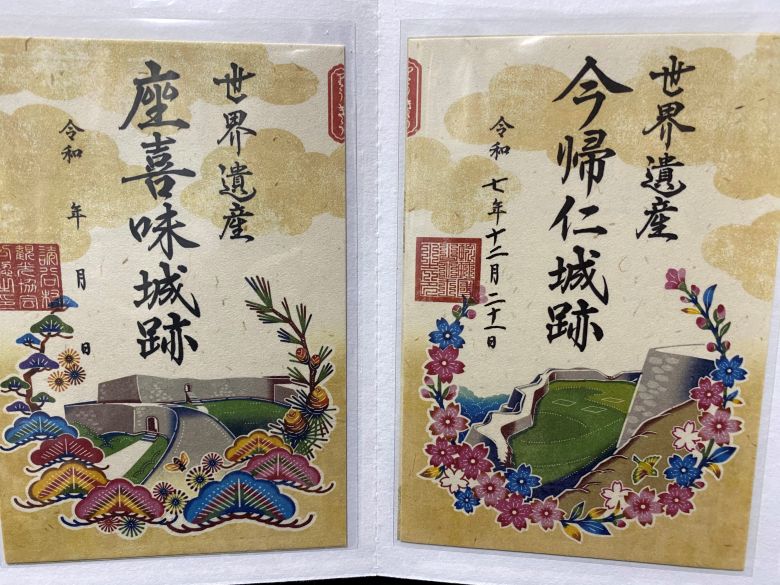 世界遺産
座喜味城跡
令和 年 月 日
世界遺産
今帰仁城跡
令和 七年十二月二十一日